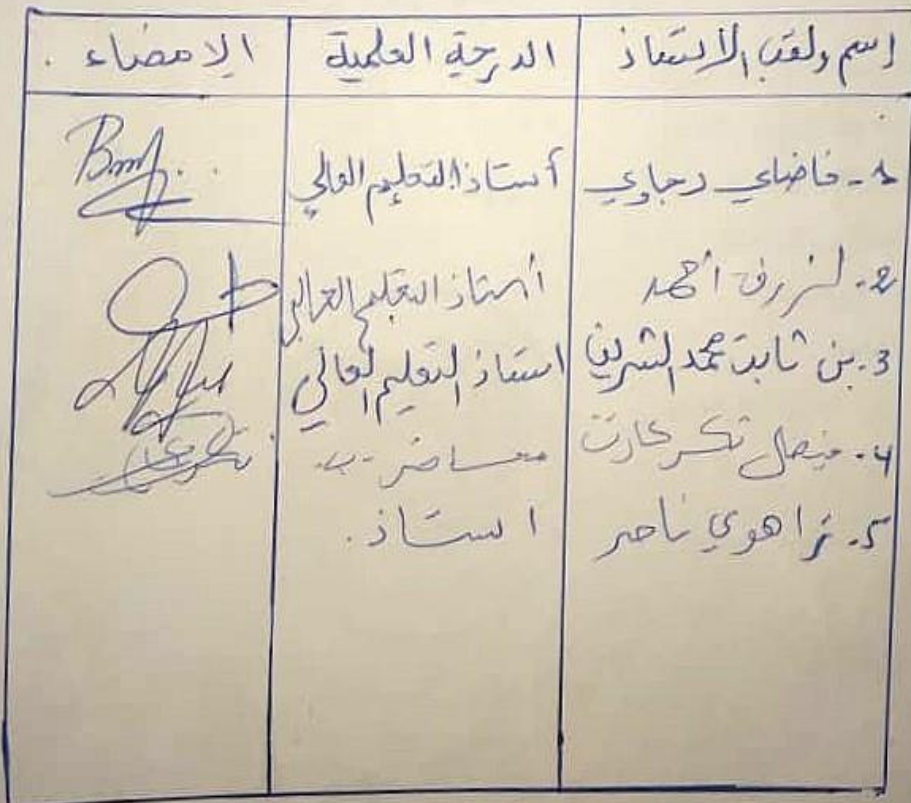 إسم ولقب الأستاذ الدرجة العلمية الإمضاء .
1- فاضلي دحاوي أستاذ التعليم العالي
2- لزرق أحمد أستاذ التعليم العالي
3- بن ثابت محمد الشريف استاذ التعليم العالي
4- فيصل محاضر -ب-
5- زاهوي ناصر استاذ .